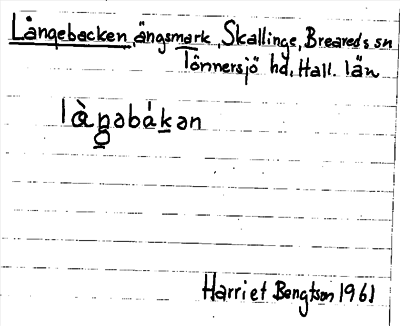 Långebacken, ängsmark, Skallinge, Breareds sn
Tönnersjö hd, Hall. län
là̀ŋəbákən
Harriet Bengtson 1961